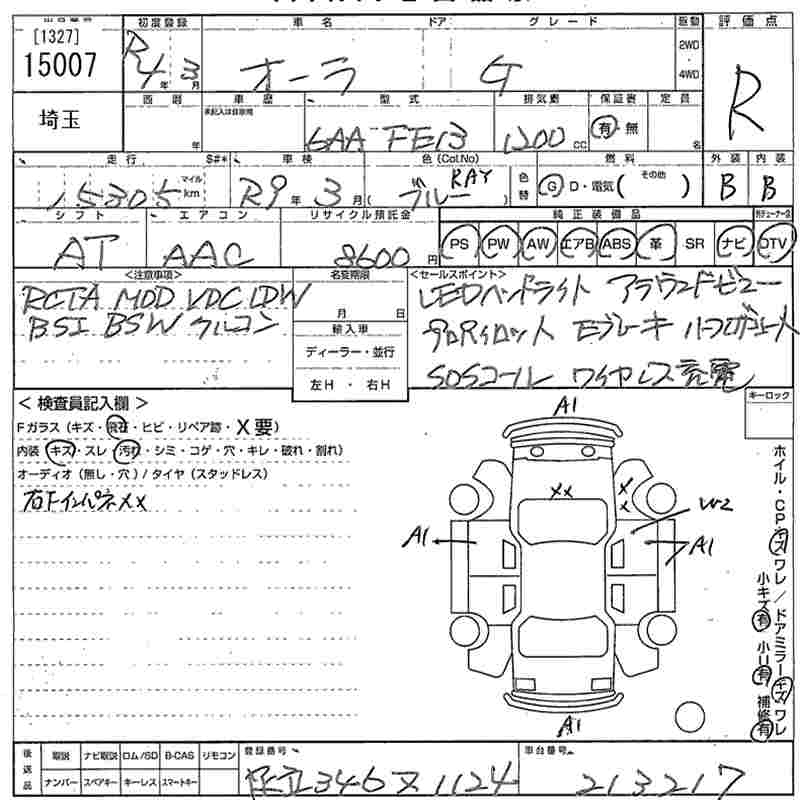 出品番号 初度登録 車名 ドア グレード 駆動 評価点
[1327]
15007
R4年 3月 オーラ G 2WD 4WD R
埼玉
西暦 年 車歴 承記入は自家用 型式 排気量 保証書 定員
6AA FE13 1200 cc 有・無 名
走行 S#* 車検 色(Col.No) 燃料 外装 内装
15305 マイル km R9年 3月 (ブルー RAY) 色替 G D・電気( その他 ) B B
シフト エアコン リサイクル預託金 純正装備品
AT AAC 8600円 PS PW AW エアB ABS 革 SR ナビ DTV
<注意事項> 名変期限 <セールスポイント>
RCTA MOD VDC LDW 月 日 LEDヘッドライト アラウンドビュー
BSI BSW クルコン 輸入車 プロパイロット Eブレーキ
ディーラー・並行 SOSコール ワイヤレス充電
左H ・ 右H
<検査員記入欄> キーロック
Fガラス(キズ・飛石・ヒビ・リペア跡・X要)
内装(キズ・スレ・汚れ・シミ・コゲ・穴・キレ・破れ・割れ)
オーディオ(無し・穴)/タイヤ(スタッドレス)
右下インパネXX
A1
XX
X
X
W2
A1
A1
A1
ホイル・CPキズワレ/ドアミラーキズワレ
小キズ有 小U有 補修有
後送品 取説 ナビ取説 ロム/SD B-CAS リモコン 登録番号 車台番号
ナンバー スペアキー キーレス スマートキー 足立346ヌ1124 213217